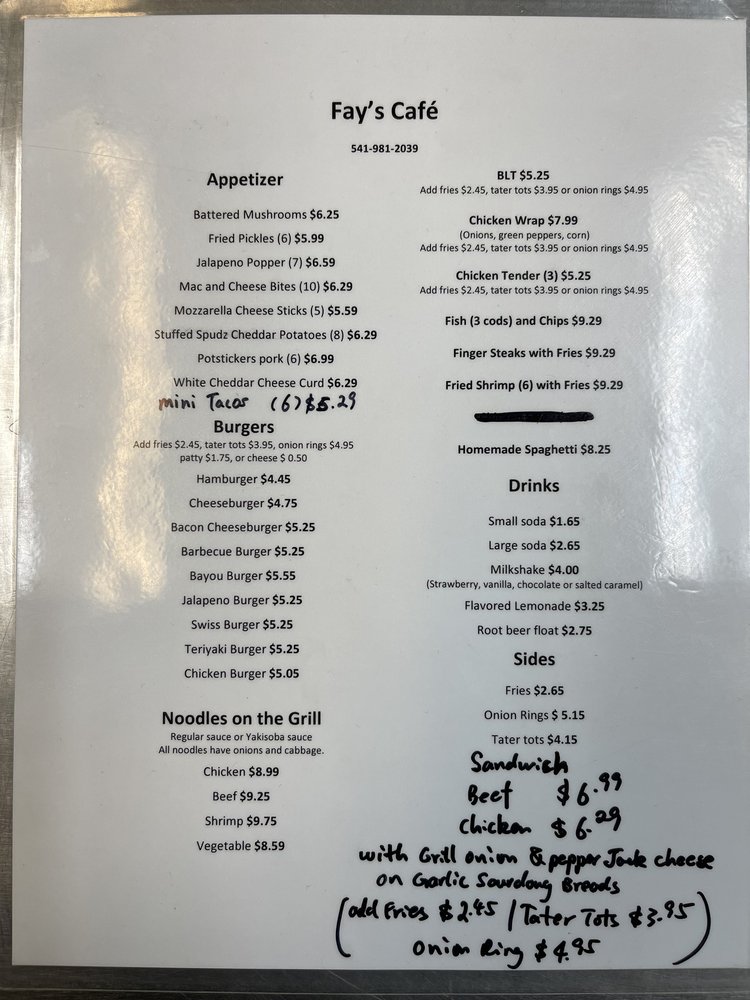 Fay's Café
541-981-2039
Appetizer
Battered Mushrooms $6.25
Fried Pickles (6) $5.99
Jalapeno Popper (7) $6.59
Mac and Cheese Bites (10) $6.29
Mozzarella Cheese Sticks (5) $5.59
Stuffed Spudz Cheddar Potatoes (8) $6.29
Potstickers pork (6) $6.99
White Cheddar Cheese Curd $6.29
mini Tacos (6) $5.29
Burgers
Add fries $2.45, tater tots $3.95, onion rings $4.95
patty $1.75, or cheese $ 0.50
Hamburger $4.45
Cheeseburger $4.75
Bacon Cheeseburger $5.25
Barbecue Burger $5.25
Bayou Burger $5.55
Jalapeno Burger $5.25
Swiss Burger $5.25
Teriyaki Burger $5.25
Chicken Burger $5.05
Noodles on the Grill
Regular sauce or Yakisoba sauce
All noodles have onions and cabbage.
Chicken $8.99
Beef $9.25
Shrimp $9.75
Vegetable $8.59
BLT $5.25
Add fries $2.45, tater tots $3.95 or onion rings $4.95
Chicken Wrap $7.99
(Onions, green peppers, corn)
Add fries $2.45, tater tots $3.95 or onion rings $4.95
Chicken Tender (3) $5.25
Add fries $2.45, tater tots $3.95 or onion rings $4.95
Fish (3 cods) and Chips $9.29
Finger Steaks with Fries $9.29
Fried Shrimp (6) with Fries $9.29
Homemade Spaghetti $8.25
Drinks
Small soda $1.65
Large soda $2.65
Milkshake $4.00
(Strawberry, vanilla, chocolate or salted caramel)
Flavored Lemonade $3.25
Root beer float $2.75
Sides
Fries $2.65
Onion Rings $ 5.15
Tater tots $4.15
Sandwich
Beef $6.99
Chicken $6.29
with Grill onion & pepper Jack cheese
on Garlic Sourdoug Breads
(add Fries $2.45 / Tater Tots $3.95)
Onion Ring $4.95